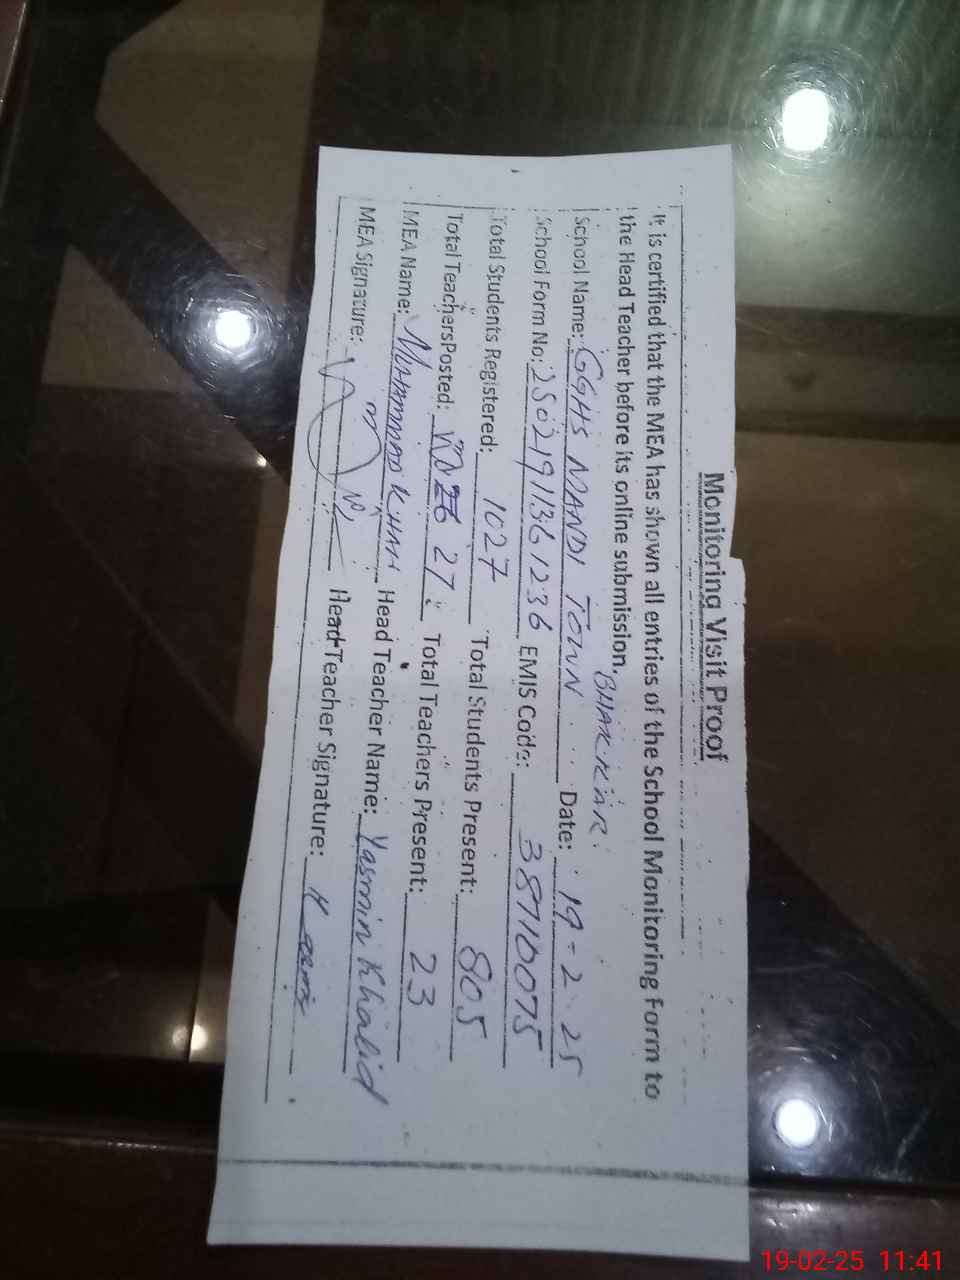 Monitoring Visit Proof
It is certified that the MEA has shown all entries of the School Monitoring Form to
the Head Teacher before its online submission. BHAKKAR.
School Name: GGHS MANDI TOWN Date: 19-2-25
School Form No: 2502191361236 EMIS Code: 38710075
Total Students Registered: 1027 Total Students Present: 805
Total TeachersPosted: 27 Total Teachers Present: 23
MEA Name: MUHAMMAD KHAN Head Teacher Name: Yasmin Khalid
MEA Signature: Head Teacher Signature:
19-02-25 11:41